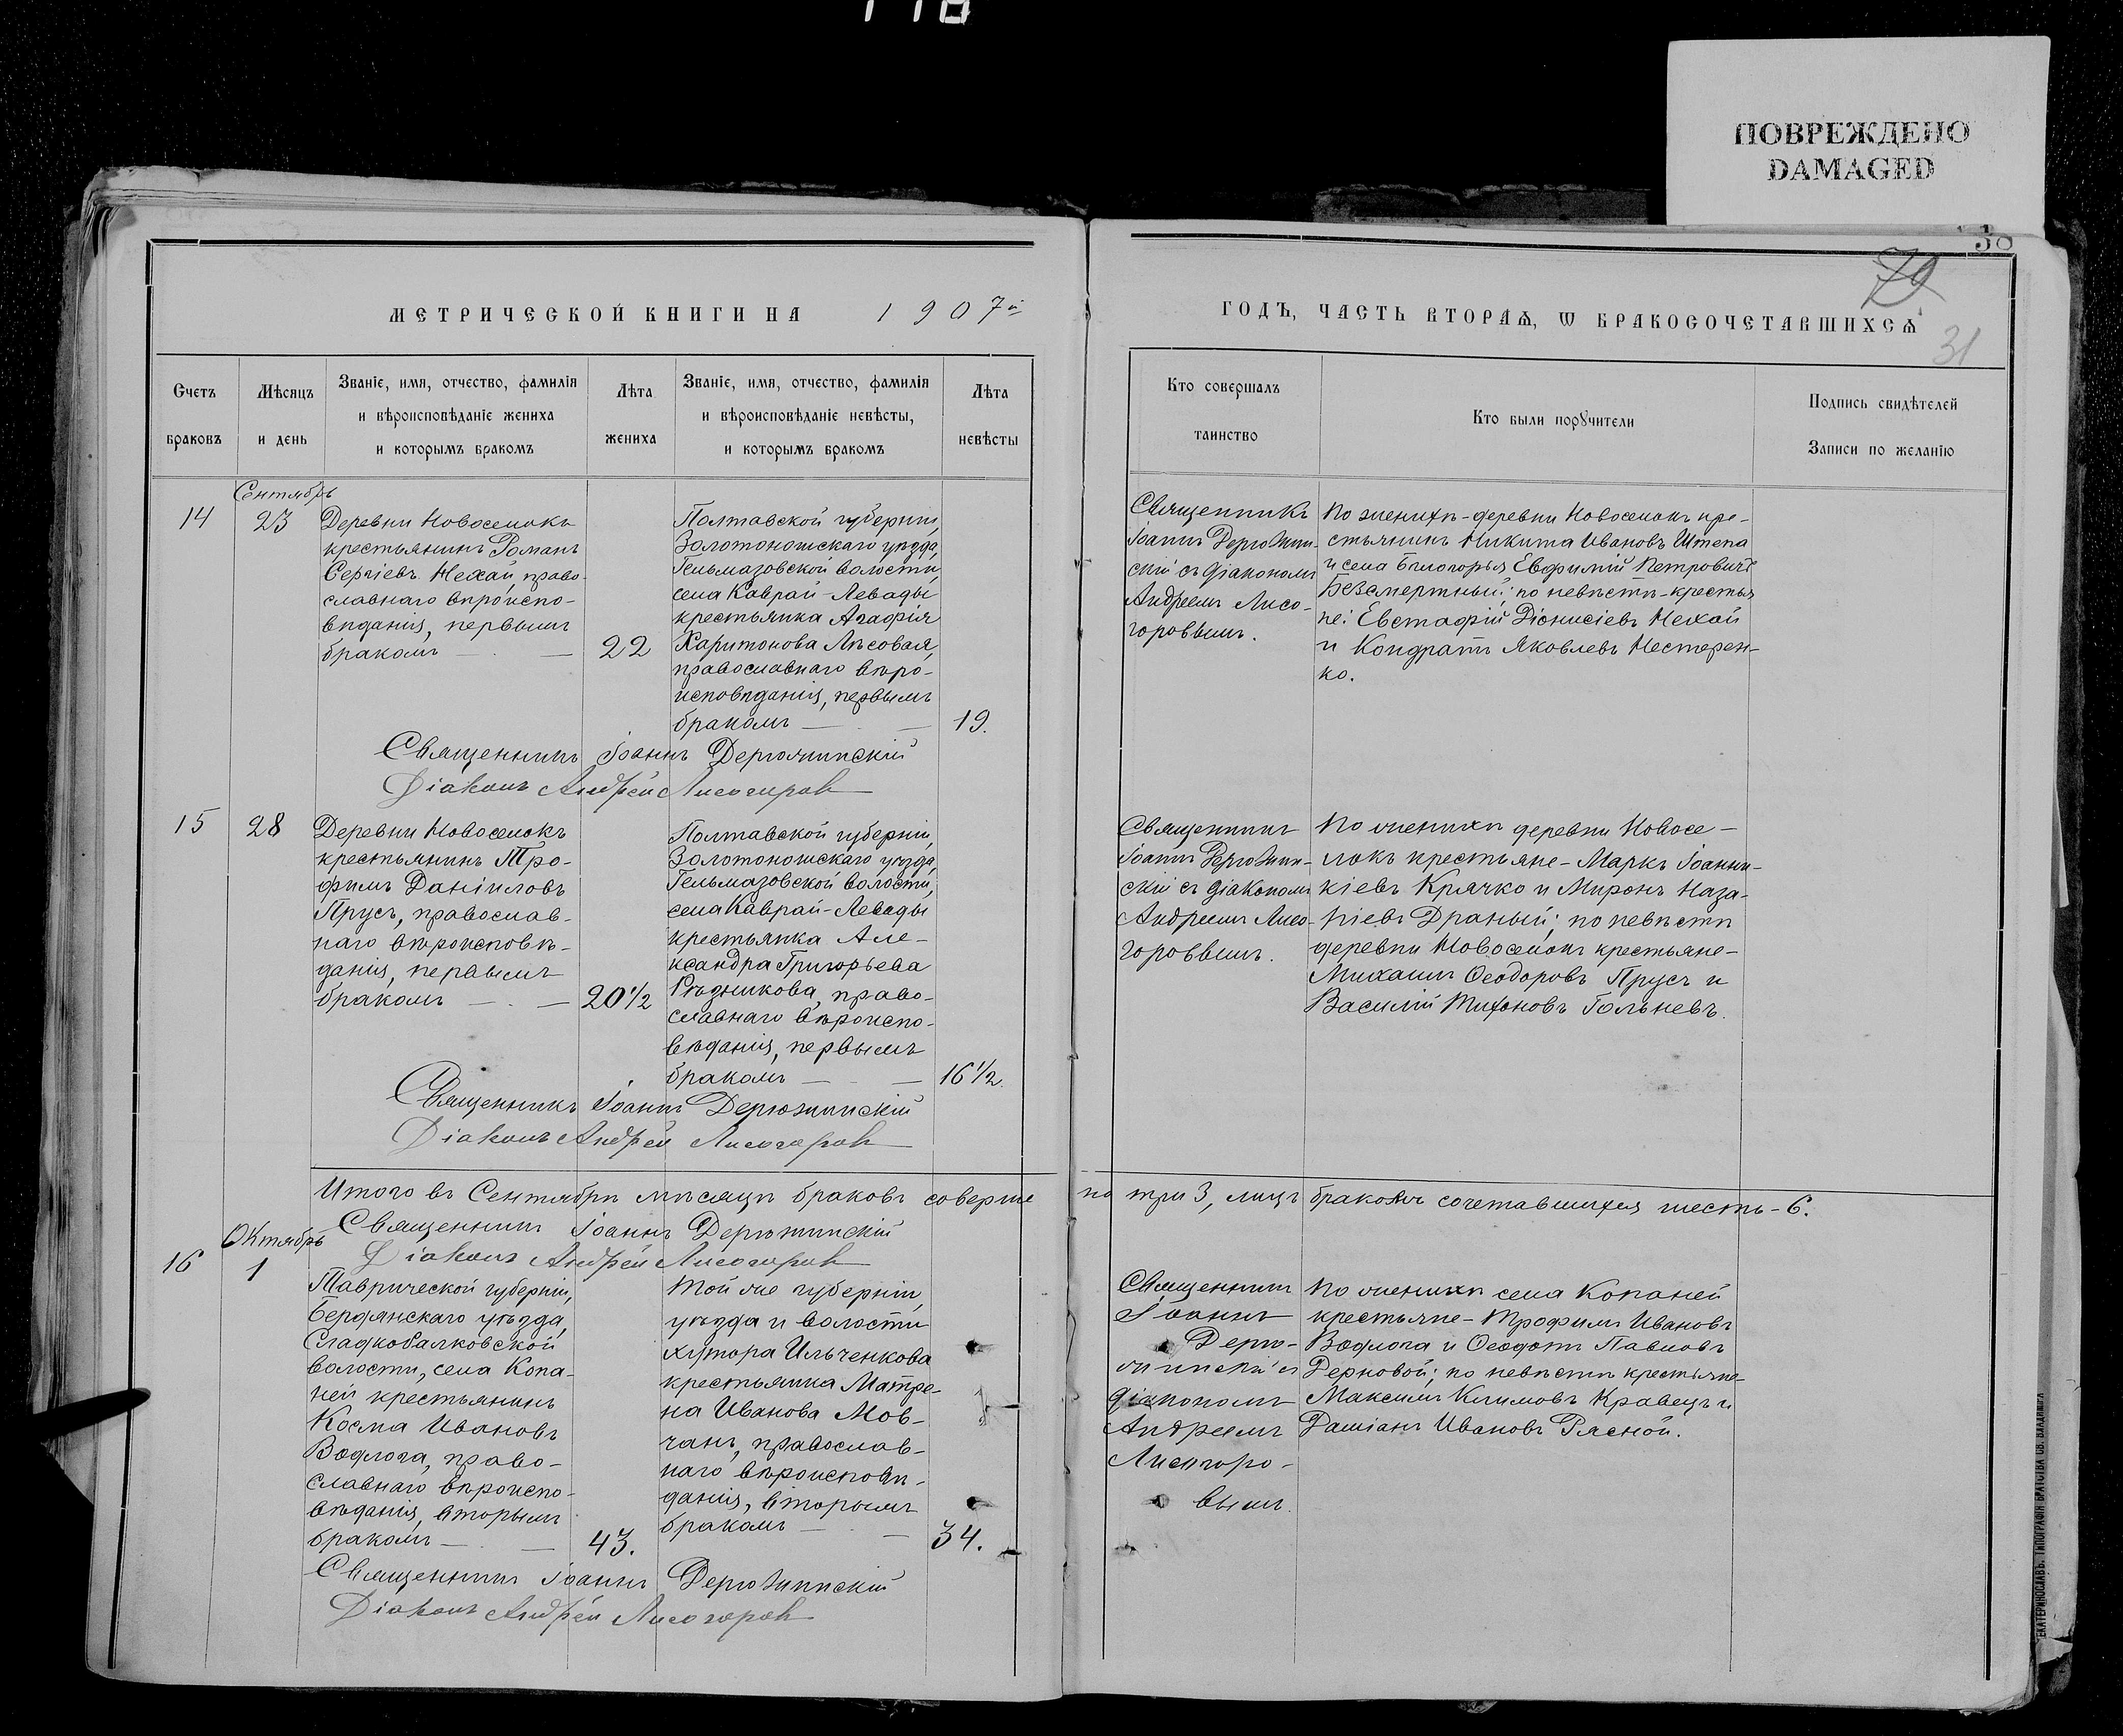 118
ПОВРЕЖДЕНО
DAMAGED
38
79
31
МЕТРИЧЕСКОЙ КНИГИ НА 1907й
ГОДЪ, ЧАСТЬ ВТОРАѦ, Ѡ БРАКОСОЧЕТАВШИХСѦ
Счетъ
браковъ
Мѣсяцъ
и день
Званіе, имя, отчество, фамилія
и вѣроисповѣданіе жениха
и которымъ бракомъ
Лѣта
жениха
Званіе, имя, отчество, фамилія
и вѣроисповѣданіе невѣсты,
и которымъ бракомъ
Лѣта
невѣсты
Кто совершалъ
таинство
Кто были порꙋчители
Подпись свидѣтелей
Записи по желанію
Сентябрь
14
23
Деревни Новоселокъ
крестьянинъ Романъ
Сергіевъ Нехай, право-
славнаго вѣроиспо-
вѣданія, первымъ
бракомъ — . —
22
Полтавской губерніи,
Золотоношскаго уѣзда,
Гельмазовской волости,
села Каврай-Левады
крестьянка Агафія
Харитонова Лѣсовая,
православнаго вѣро-
исповѣданія, первымъ
бракомъ — . —
19.
Священникъ
Іоаннъ Дерюжин-
скій съ діакономъ
Андреемъ Лисо-
горовымъ.
По женихѣ-деревни Новоселокъ кре-
стьянинъ Никита Ивановъ Штепа
и села Бѣлогорья Евфимій Петровичъ
Безсмертный; по невѣстѣ-крестья
не: Евстафій Діонисіевъ Нехай
и Кондратъ Яковлевъ Нестерен-
ко.
Священникъ Іоаннъ Дерюжинскій
Діаконъ Андрей Лисогоровъ
15
28
Деревни Новоселокъ
крестьянинъ Тро-
фимъ Даніиловъ
Прусъ, православ-
наго вѣроисповѣ-
данія, первымъ
бракомъ — . —
20 1/2
Полтавской губерніи,
Золотоношскаго уѣзда,
Гельмазовской волости,
села Каврай-Левады
крестьянка Але-
ксандра Григорьева
Рѣдникова, право-
славнаго вѣроиспо-
вѣданія, первымъ
бракомъ — . —
16 1/2.
Священникъ
Іоаннъ Дерюжин-
скій съ діакономъ
Андреемъ Лисо-
горовымъ.
По женихѣ деревни Новосе-
локъ крестьяне-Маркъ Іоанни-
кіевъ Крячко и Миронъ Наза-
ріевъ Драный; по невѣстѣ
деревни Новоселокъ крестьяне-
Михаилъ Ѳеодоровъ Прусъ и
Василій Тихоновъ Гольневъ.
Священникъ Іоаннъ Дерюжинскій
Діаконъ Андрей Лисогоровъ
Итого въ Сентябрѣ мѣсяцѣ браковъ соверше но три 3, лицъ бракомъ сочетавшихся шесть-6.
Священникъ Іоаннъ Дерюжинскій
Діаконъ Андрей Лисогоровъ
Октябрь
16
1
Таврической губерніи,
Бердянскаго уѣзда,
Сладкобалковской
волости, села Копа-
ней крестьянинъ
Косма Ивановъ
Водлога, право-
славнаго вѣроиспо-
вѣданія, вторымъ
бракомъ — . —
43.
Той же губерніи,
уѣзда и волости
хутора Ильченкова
крестьянка Матре-
на Иванова Мов-
чанъ, православ-
наго вѣроисповѣ-
данія, вторымъ
бракомъ — . —
34.
Священникъ
Іоаннъ
Дерю-
жинскій съ
діакономъ
Андреемъ
Лисогоро-
вымъ.
По женихѣ села Копаней
крестьяне-Трофимъ Ивановъ
Водлога и Ѳеодотъ Павловъ
Дерновой; по невѣстѣ крестьяне-
Максимъ Климовъ Кравецъ и
Даміанъ Ивановъ Рясной.
Священникъ Іоаннъ Дерюжинскій
Діаконъ Андрей Лисогоровъ
ЕКАТЕРИНОСЛАВЪ. ТИПОГРАФІЯ БРАТСТВА СВ. ВЛАДИМІРА